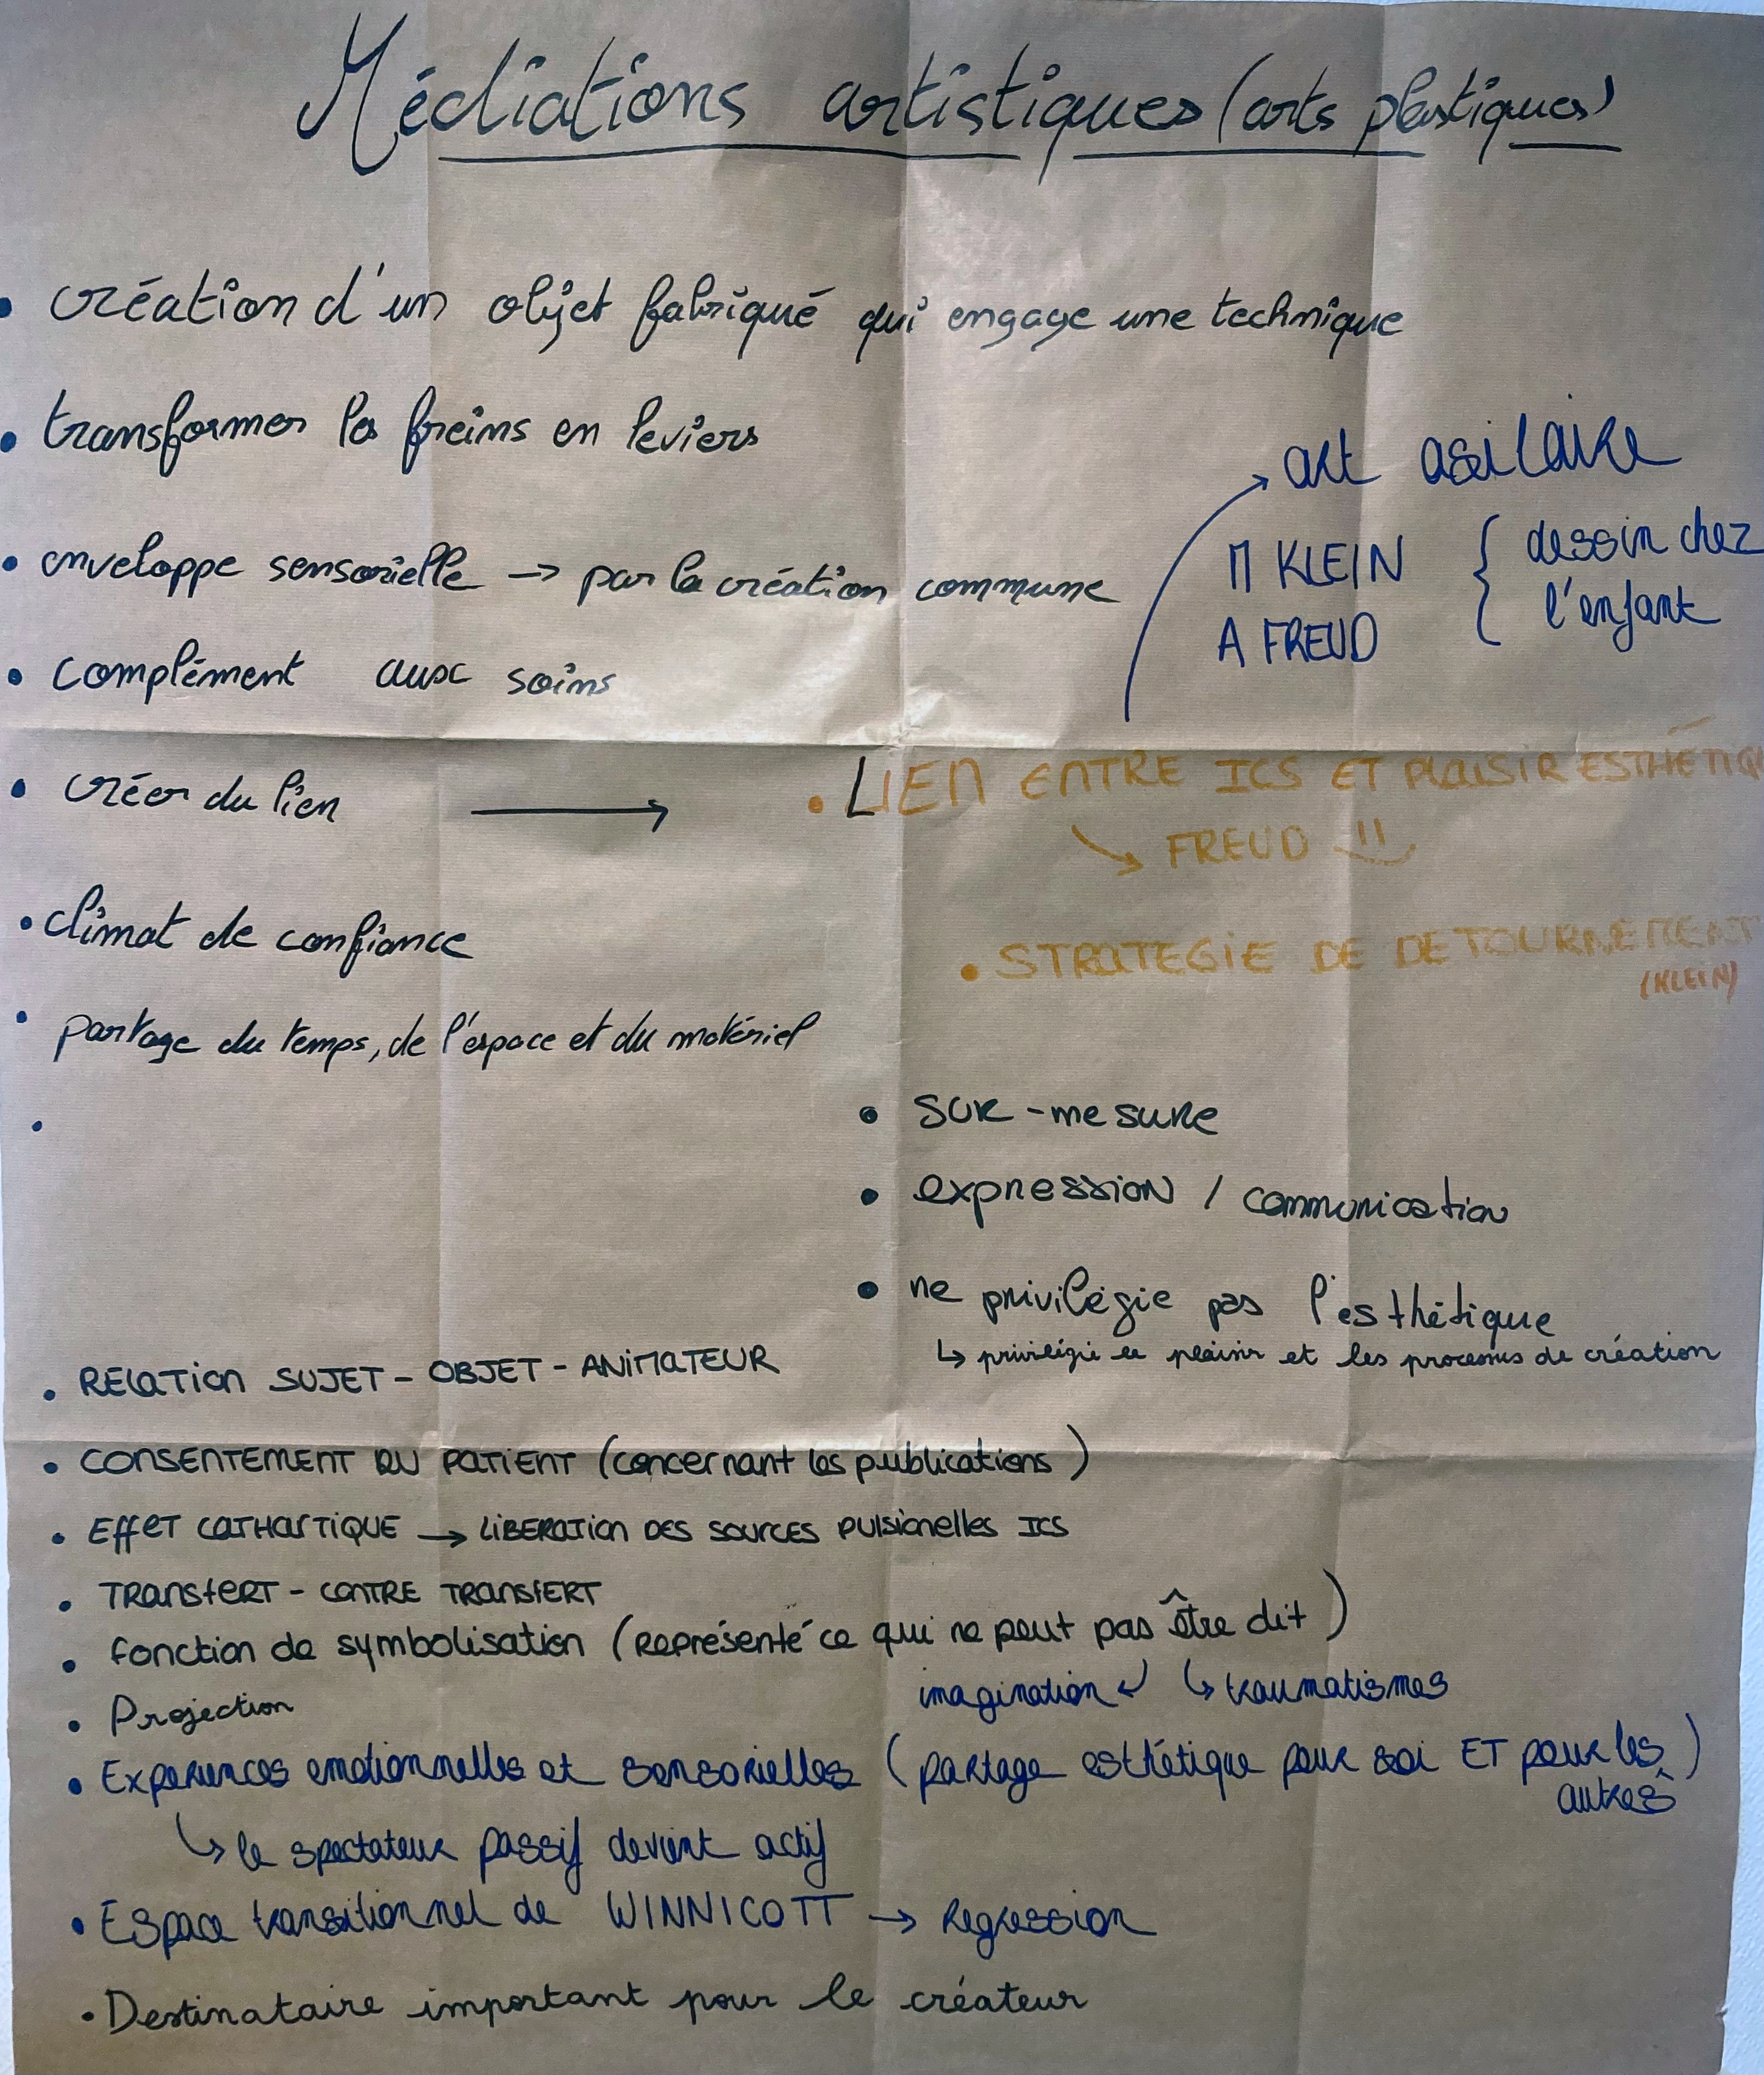 Médiations artistiques (arts plastiques)
• création d'un objet fabriqué qui engage une technique
• transformer les freins en leviers
• enveloppe sensorielle → par la création commune
• complément aux soins
→ art asilaire
M KLEIN { dessin chez
A FREUD { l'enfant
• créer du lien →
• LIEN ENTRE ICS ET PLAISIR ESTHÉTIQU
↘ FREUD
• climat de confiance
• STRATEGIE DE DETOURNEMENT
(KLEIN)
• partage du temps, de l'espace et du matériel
•
• sur-mesure
• expression / communication
• ne privilégie pas l'esthétique
↳ privilégie le plaisir et les processus de création
• RELATION SUJET - OBJET - ANIMATEUR
• CONSENTEMENT DU PATIENT (concernant les publications)
• Effet CATHARTIQUE → LIBERATION DES SOURCES PULSIONELLES ICS
• TRANSFERT - CONTRE TRANSFERT
• fonction de symbolisation (Représenté ce qui ne peut pas être dit)
imagination ↲ ↳ traumatismes
• Projection
• Expériences emotionnelles et sensorielles (partage esthétique pour soi ET pour les autres)
↳ le spectateur passif devient actif
• Espace transitionnel de WINNICOTT → Regression
• Destinataire important pour le créateur